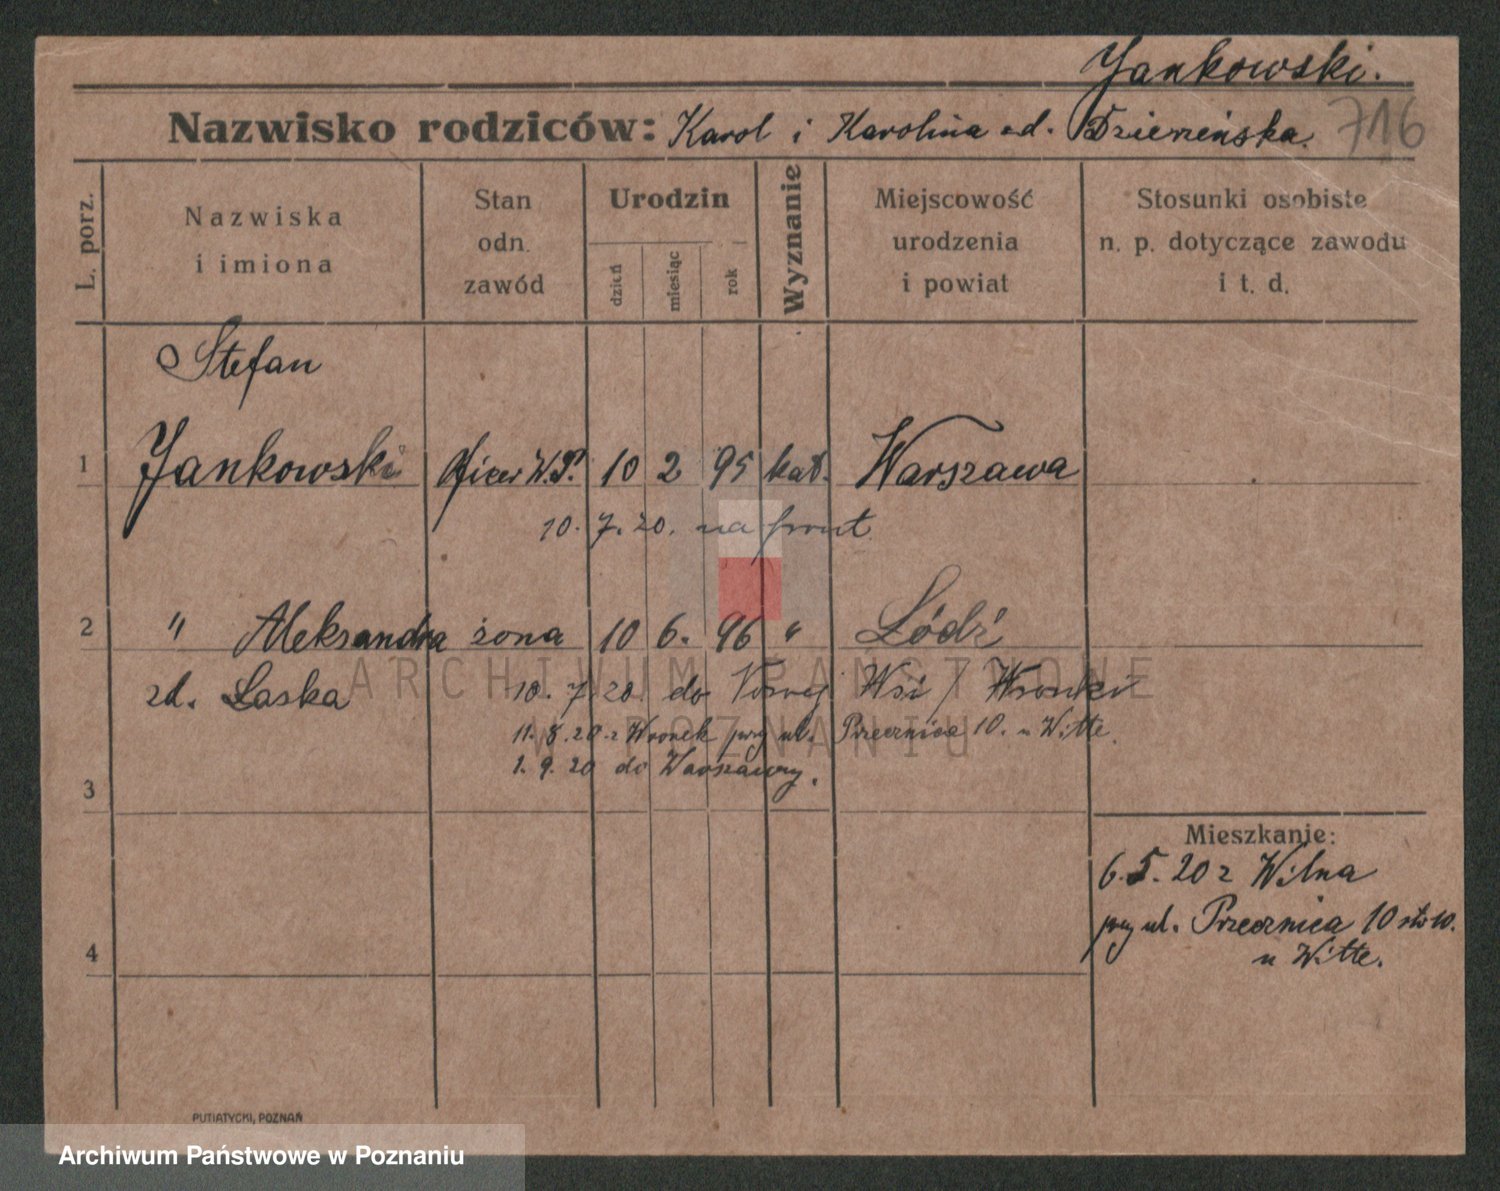 Jankowski.
Nazwisko rodziców: Karol i Karolina zd. Dzierzeńska. 716
L. porz.
Nazwiska
i imiona
Stan
odn.
zawód
Urodzin
dzień
miesiąc
rok
Wyznanie
Miejscowość
urodzenia
i powiat
Stosunki osobiste
n. p. dotyczące zawodu
i t. d.
Stefan
1 Jankowski Oficer W.P. 10 2 95 kat. Warszawa
10. 7. 20. na front
2 " Aleksandra żona 10 6. 96 " Łódź
zd. Łaska 10. 7 20. do Nowej Wsi / Wronki
11. 8. 20 z Wronek przy ul. Przecznica 10. u Witte.
1. 9. 20 do Warszawy.
3
Mieszkanie:
6. 5. 20 z Wilna
przy ul. Przecznica 10
u Witte.
4
PUTIATYCKI, POZNAŃ
ARCHIWUM PAŃSTWOWE
W POZNANIU
Archiwum Państwowe w Poznaniu